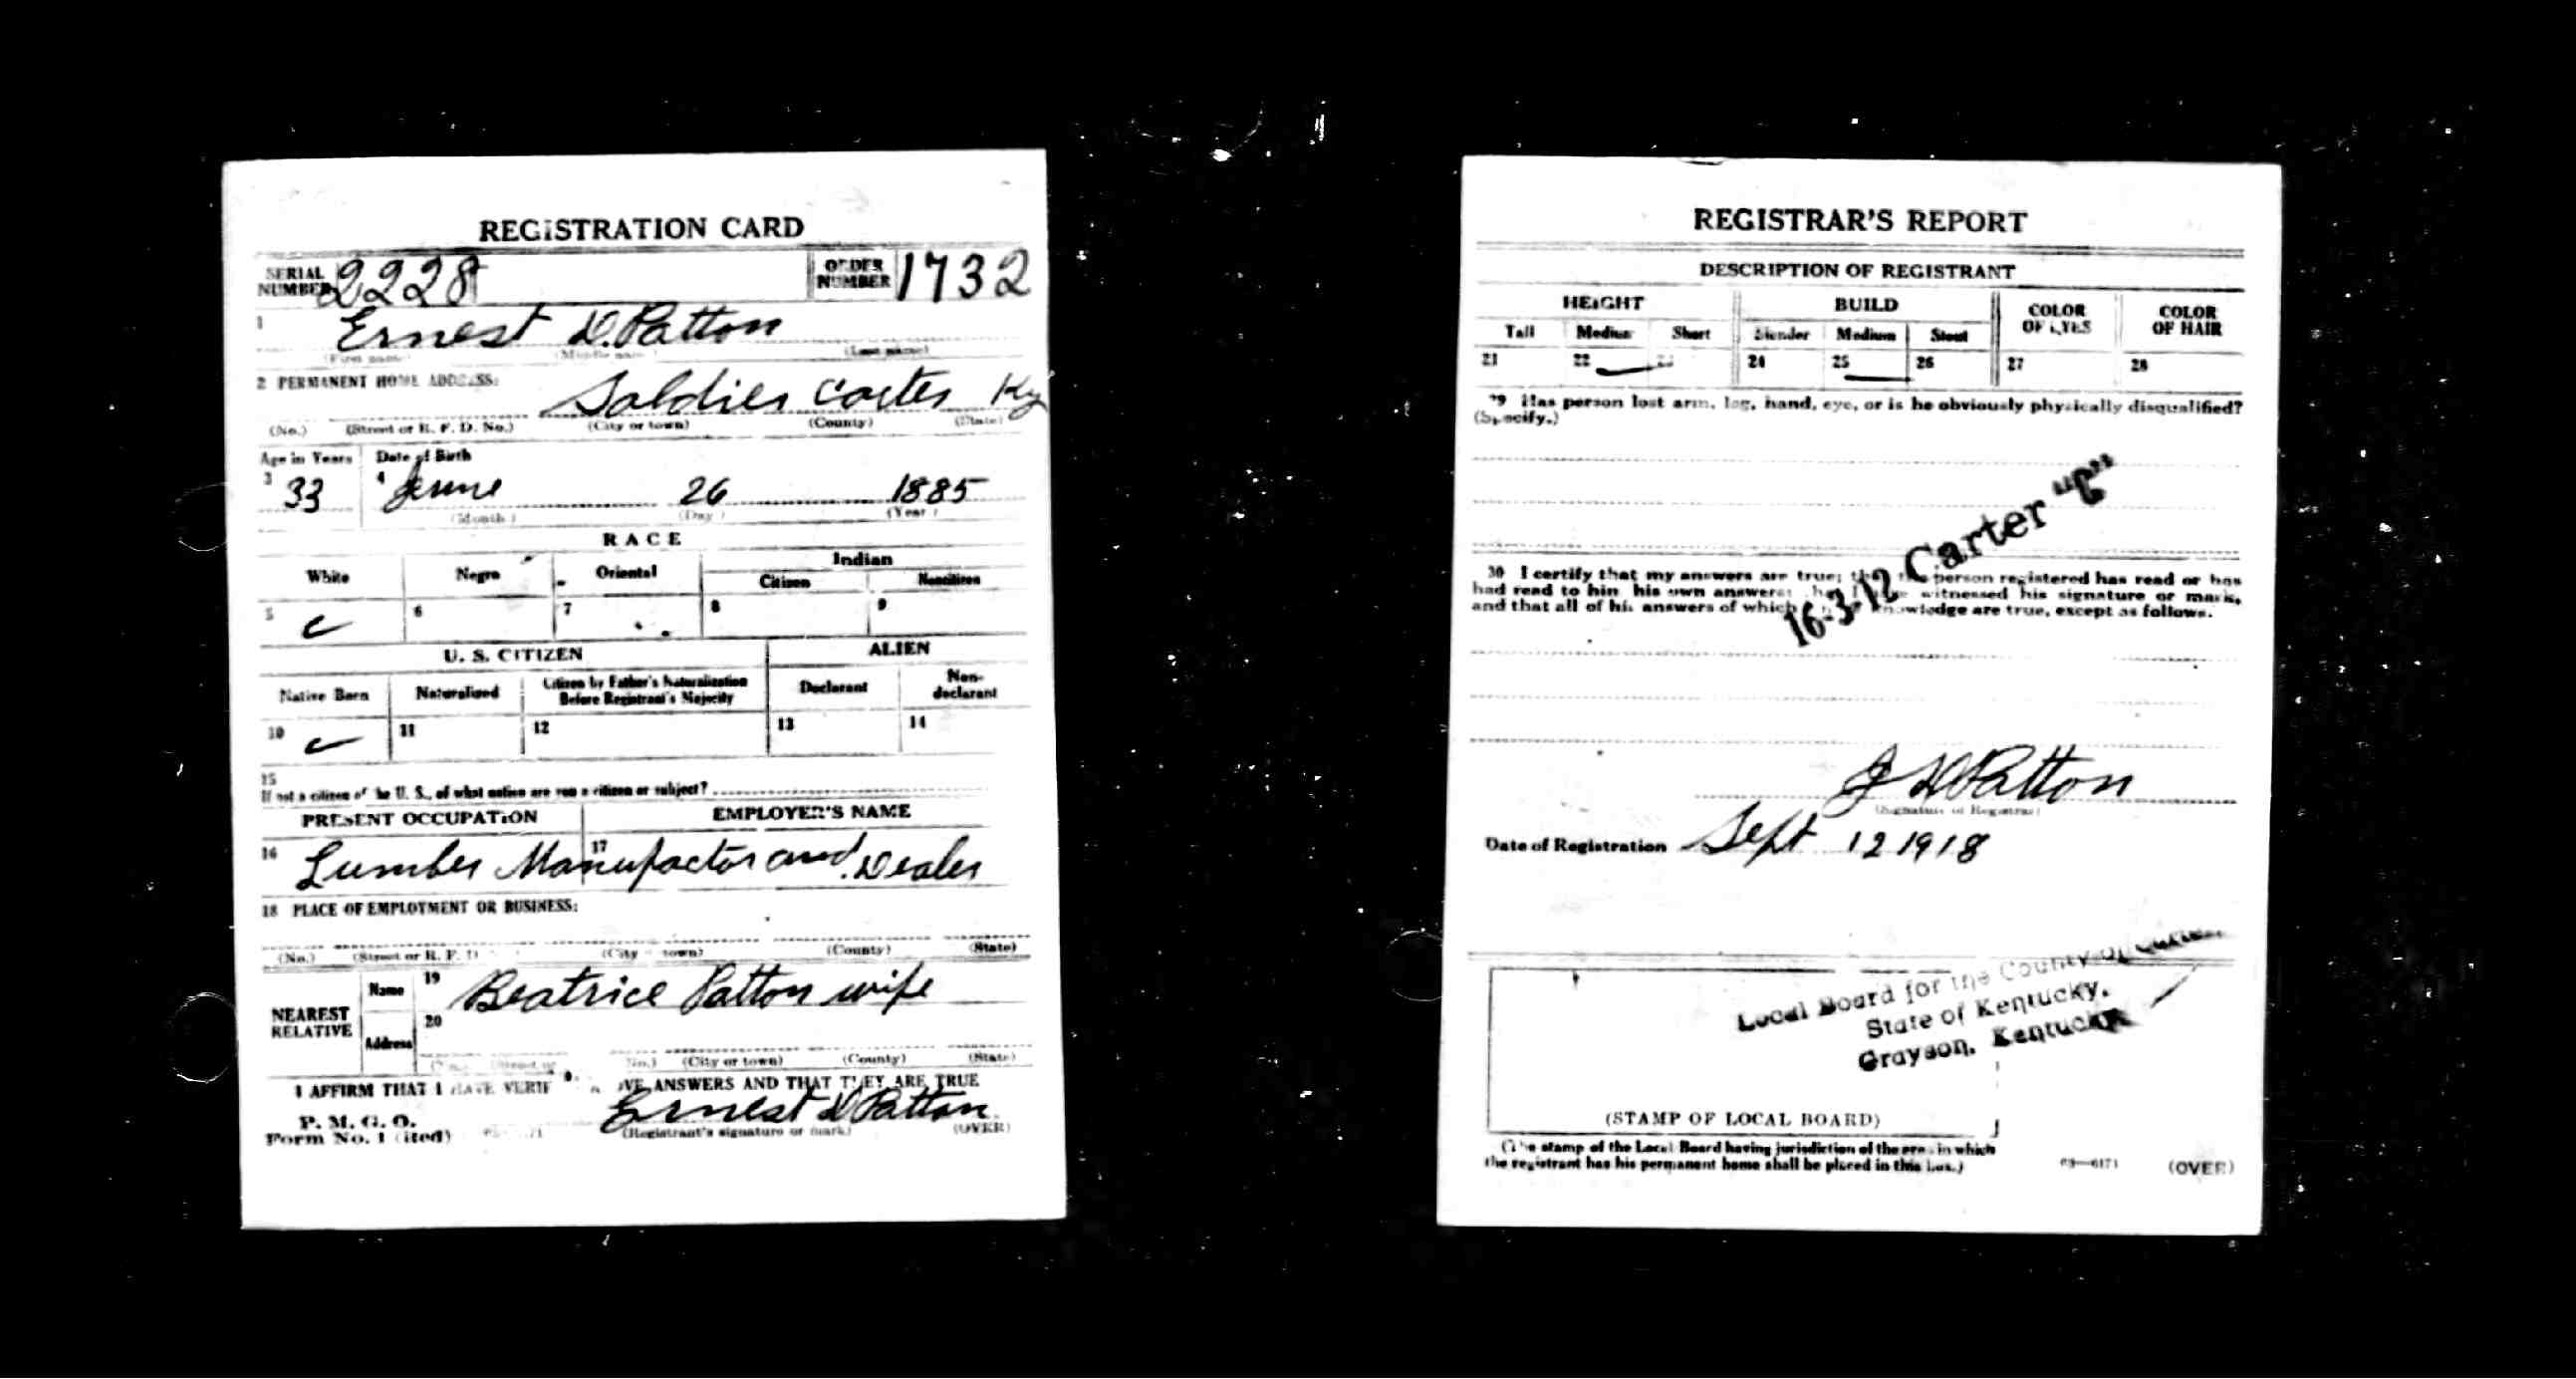 REGISTRATION CARD
SERIAL NUMBER 2228 ORDER NUMBER 1732
1 Ernest D. Patton
(First name) (Middle name) (Last name)
2 PERMANENT HOME ADDRESS:
Soldier Carter Ky
(No.) (Street or R. F. D. No.) (City or town) (County) (State)
Age in Years Date of Birth
3 33 4 June 26 1885
(Month) (Day) (Year)
RACE
White Negro Oriental Indian
Citizen Noncitizen
5 6 7 8 9
U. S. CITIZEN ALIEN
Native Born Naturalized Citizen by Father's Naturalization Before Registrant's Majority Declarant Non-declarant
10 11 12 13 14
15
If not a citizen of the U. S., of what nation are you a citizen or subject?
PRESENT OCCUPATION EMPLOYER'S NAME
16 17
Lumber Manufactor and Dealer
18 PLACE OF EMPLOYMENT OR BUSINESS:
(No.) (Street or R. F. D. (City town) (County) (State)
NEAREST RELATIVE Name 19 Beatrice Patton wife
Address 20
No.) (City or town) (County) (State)
I AFFIRM THAT I HAVE VERIF VE ANSWERS AND THAT THEY ARE TRUE
P. M. G. O.
Form No. 1 (Red)
Ernest D Patton
(Registrant's signature or mark) (OVER)
REGISTRAR'S REPORT
DESCRIPTION OF REGISTRANT
HEIGHT BUILD COLOR OF EYES COLOR OF HAIR
Tall Medium Short Slender Medium Stout
21 22 23 24 25 26 27 28
29 Has person lost arm, leg, hand, eye, or is he obviously physically disqualified?
(Specify.)
16-3-12 Carter "C"
30 I certify that my answers are true; that the person registered has read or has
had read to him his own answers; that I have witnessed his signature or mark,
and that all of his answers of which knowledge are true, except as follows.
J D Patton
(Signature of Registrar)
Date of Registration Sept 12 1918
Local Board for the County of Carter
State of Kentucky.
Grayson, Kentucky
(STAMP OF LOCAL BOARD)
(The stamp of the Local Board having jurisdiction of the area in which
the registrant has his permanent home shall be placed in this box.)
03—6171 (OVER)